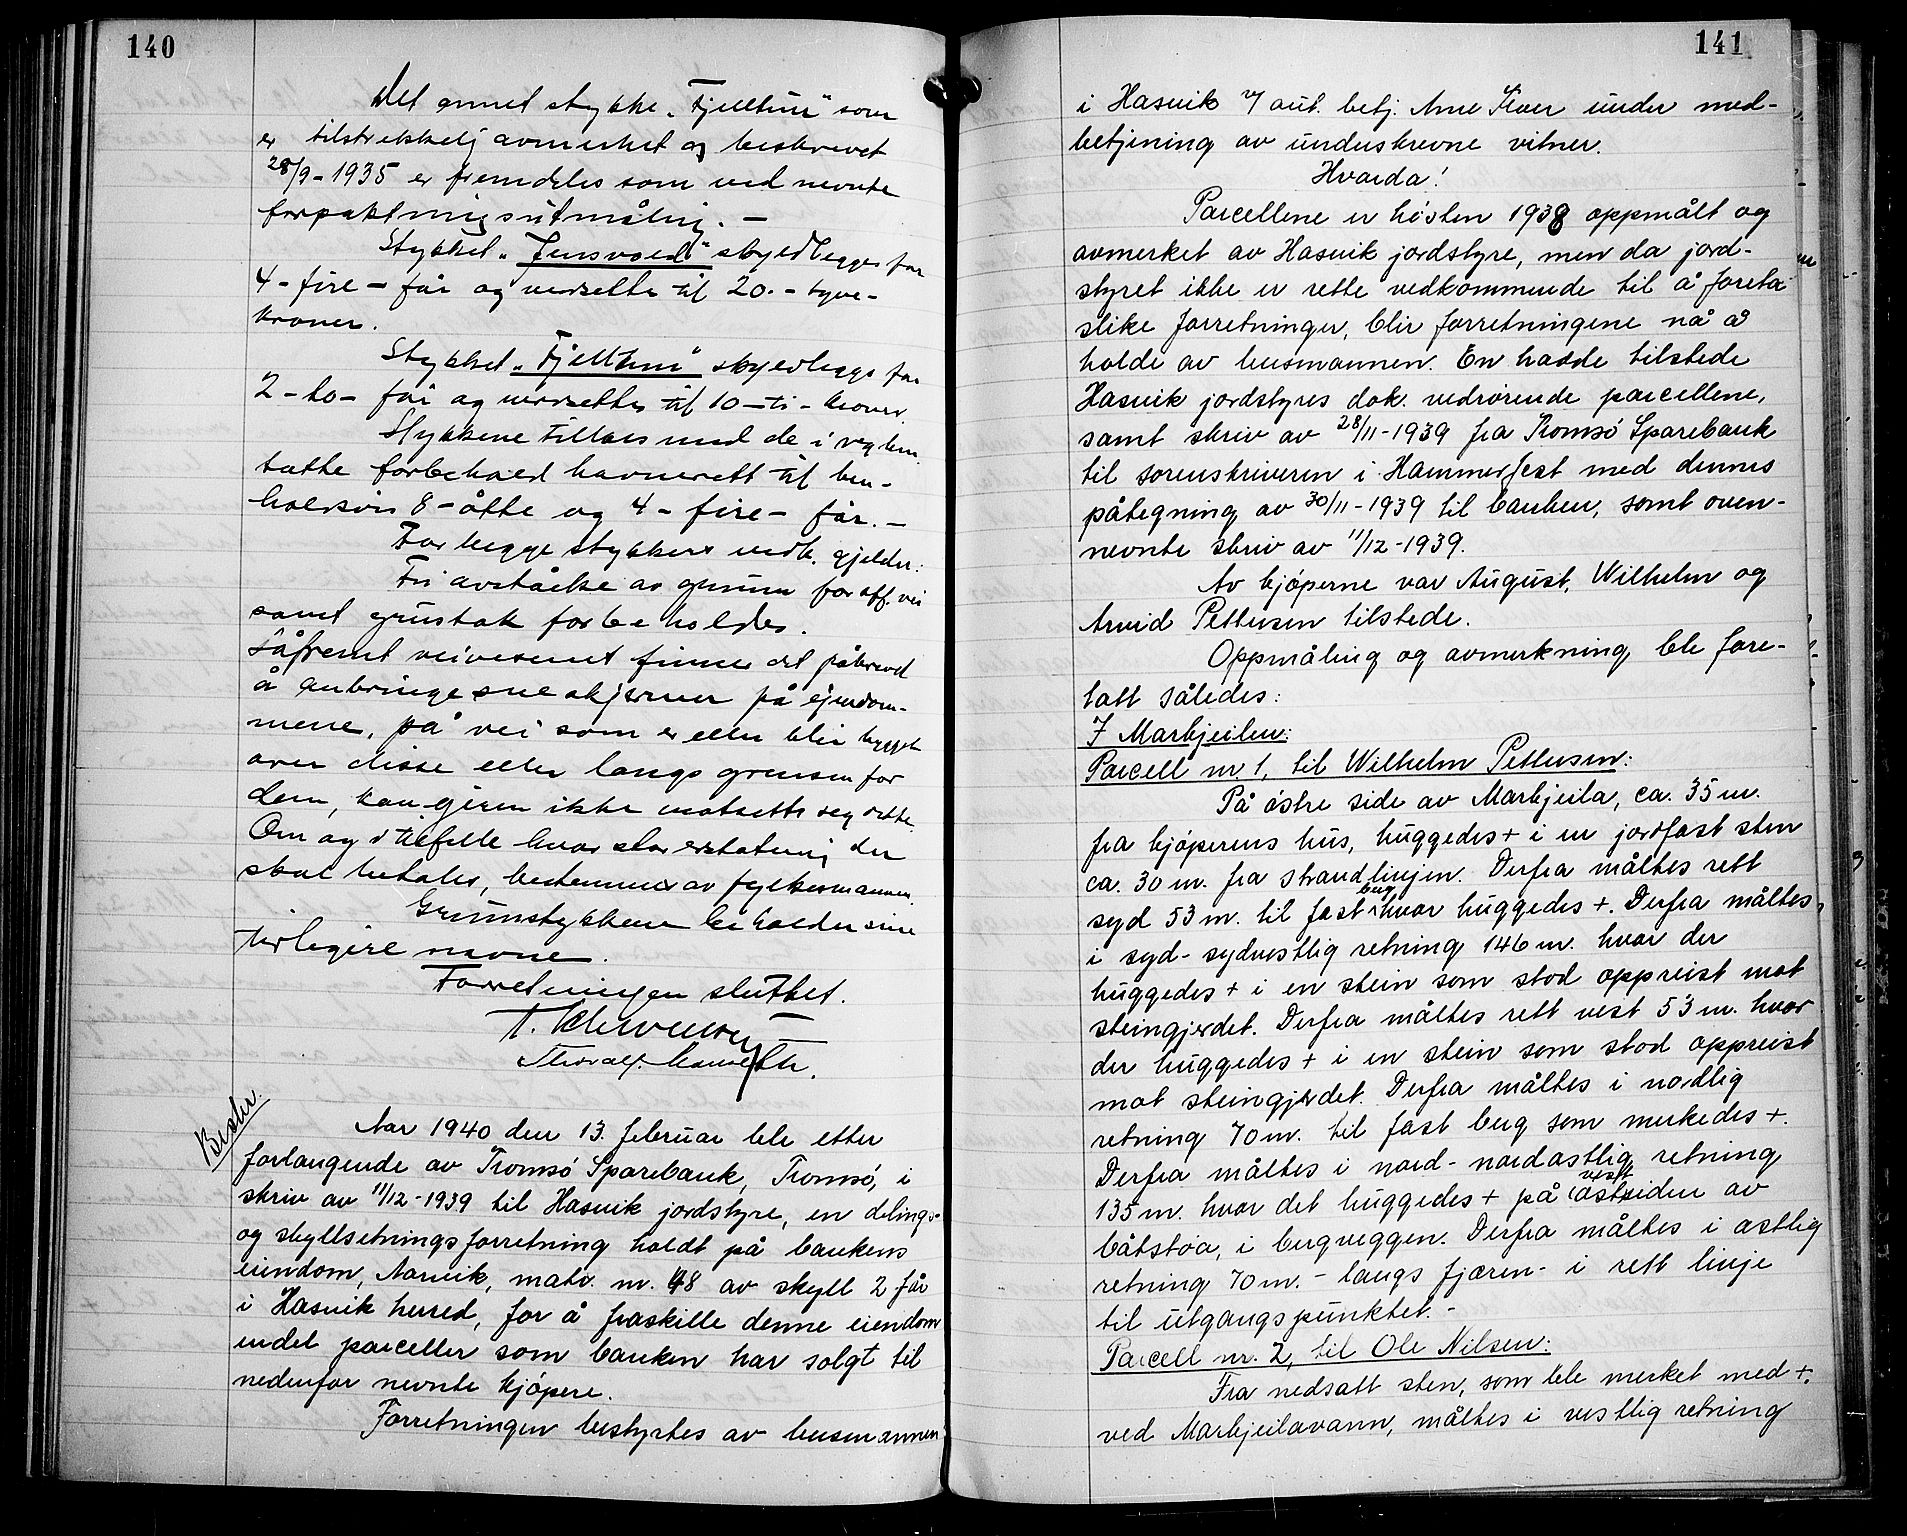 140
Det annet stykke „Fjelltun" som
er tilstrekkelig avmerket og beskrevet
28/9-1935 er fremdeles som ved nevnte
forpaktningsutmåling. —
Stykket „Jensvold" skyldlegges for
4 - fire - får og verdsettes til 20.- tyve-
kroner.
Stykket „Fjelltun" skyldlegges for
2 - to - får og verdsettes til 10 - ti - kroner
Stykkene tillaes med de i reglem.
tatte forbehold havnerett til hen-
holdsvis 8 - åtte og 4 - fire - får. -
For begge stykkers vedk. gjelder:
Fri avståelse av grunn for off. vei
samt grustak forbeholdes.
Såfremt veivesenet finner det påkrevd
å anbringe sneskjermer på eiendom-
mene, på vei som er eller blir bygget
over disse eller langs grensen for
dem, kan eieren ikke motsette seg dette.
Om og i tilfelle hvor stor erstatning der
skal betales, bestemmes av fylkesmannen.
Grunnstykkene beholder sine
tidligere navne.
Forretningen sluttet.
Thoralf
Beskr.
Aar 1940 den 13. februar ble etter
forlangende av Tromsö Sparebank, Tromsö, i
skriv av 11/12-1939 til Hasvik jordstyre, en delings-
og skyllsetningsforretning holdt på bankens
eiendom, Narvik, matr. nr. 48 av skyll 2 får
i Hasvik herred, for å fraskille denne eiendom
endel parceller som banken har solgt til
nedenfor nevnte kjöpere.
Forretningen bestyrtes av lensmannen
141
i Hasvik v/ aut. betj. Arne Kver under med-
betjening av underskrevne vitner.
Hvorda!
Parcellene er hösten 1938 oppmålt og
avmerket av Hasvik jordstyre, men da jord-
styret ikke er rette vedkommende til å foreta
slike forretninger, blir forretningene nå å
holde av lensmannen. En hadde tilstede
Hasvik jordstyres dok. vedrörende parcellene,
samt skriv av 28/11-1939 fra Tromsö Sparebank
til sorenskriveren i Hammerfest med dennes
påtegning av 30/11-1939 til banken, samt oven-
nevnte skriv av 11/12-1939.
Av kjöperne var August, Wilhelm og
Arvid Pettersen tilstede.
Oppmåling og avmerkning ble fore-
tatt således:
I Markjeilen:
Parcell nr 1, til Wilhelm Pettersen:
På östre side av Markjeila, ca. 35 m.
fra kjöperens hus, huggedes + i en jordfast sten
ca. 30 m. fra strandlinjen. Derfra måltes rett
syd 53 m. til fast berg hvor huggedes +. Derfra måltes
i syd-sydvestlig retning 146 m. hvor der
huggedes + i en stein som stod oppreist mot
steingjerdet. Derfra måltes rett vest 53 m. hvor
der huggedes + i en stein som stod oppreist
mot steingjerdet. Derfra måltes i nordlig
retning 70 m. til fast berg som merkedes +.
Derfra måltes i nord-nordostlig retning
135 m. hvor det huggedes + på vestsiden av
båtstöa, i bergveggen. Derfra måltes i östlig
retning 70 m. - langs fjæren - i rett linje
til utgangspunktet. -
Parcell nr. 2, til Ole Nilsen:
Fra nedsatt sten, som ble merket med +.
ved Markjeilavann, måltes i vestlig retning